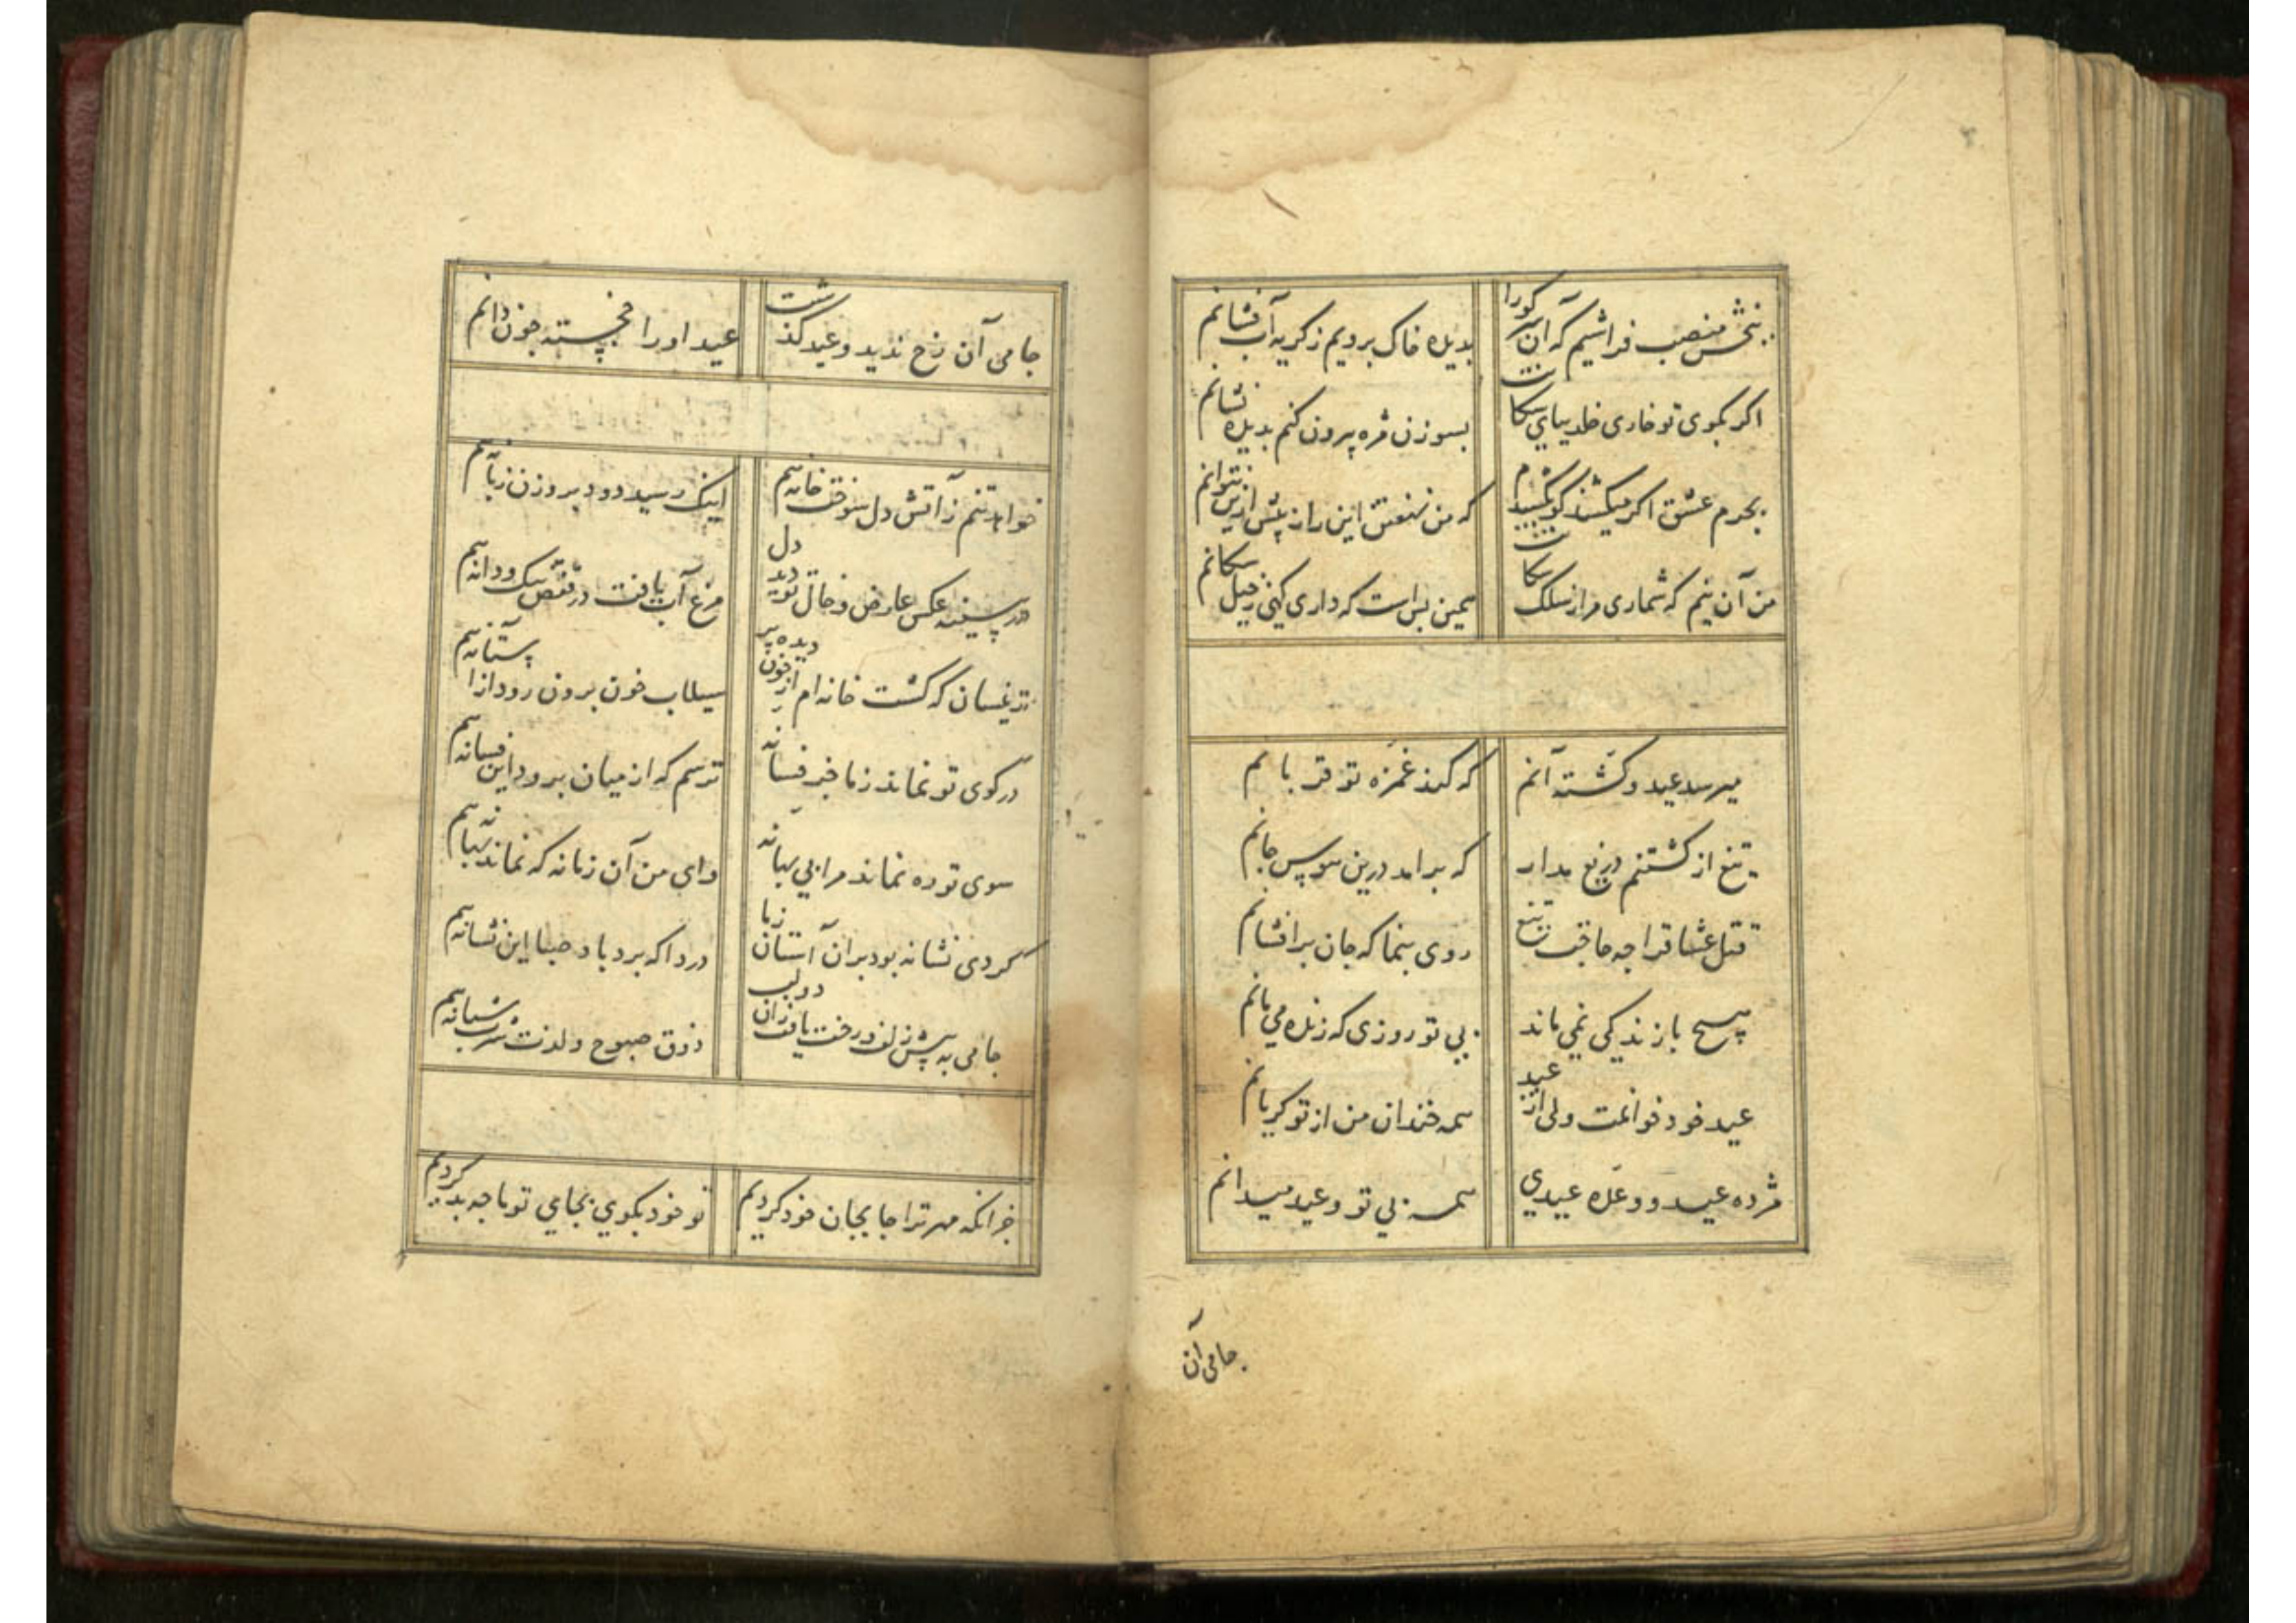 ببخش منصب فراشیم که آن سر کورا بدیده خاک بروبم ز کریه آب فشانم
اکر بکوی تو خاری خلد بپای سکانت بسوزن مژه بیرون کنم بدیده نشانم
بجرم عشق اکر میکشند کو بکشیدم که من نهفتن این راز بیش ازین نتوانم
من آن نیم که شماری مرا ز سلک سکانت همین بس است که داری کهی ز خیل سکانم
میرسد عید و کشته آنم که کند غمزه تو قربانم
تیغ از کشتنم دریغ مدار که برآمد درین هوس جانم
قتل عشاق را چه حاجت تیغ روی بنما که جان برافشانم
هیچ با زندکی نمی ماند بی تو روزی که زنده می مانم
عید خود خوانمت ولی از عید همه خندان من از تو کریانم
مژده عید و وعده عیدی همه بی تو وعید میدانم
جامی آن
جامی آن رخ ندید و عید کذشت عید او را خجسته چون دانم
خواهد تنم ز آتش دل سوخت خانه هم اینک رسید دود بروزن زبانه هم
در سینه عکس عارض و خال تو دید دل مرغ آب یافت در قفس تنک و دانه هم
زینسان که کشت خانه ام از خون دیده پر سیلاب خون برون رود از آستانه هم
در کوی تو نماند ز ما جز فسانه ترسم که از میان برود این فسانه هم
سوی تو ره نماند مرا بی بهانه وای من آن زمانه که نماند بهانه هم
کردی نشانه بود بر آن آستان ز ما دردا که برد باد صبا این نشانه هم
جامی به پیش زلف و رخت یافت زان دو لب ذوق صبوح و لذت شرب شبانه هم
جز انکه مهر ترا جا بجان خود کردیم تو خود بکوی بجای تو ما چه بد کردیم